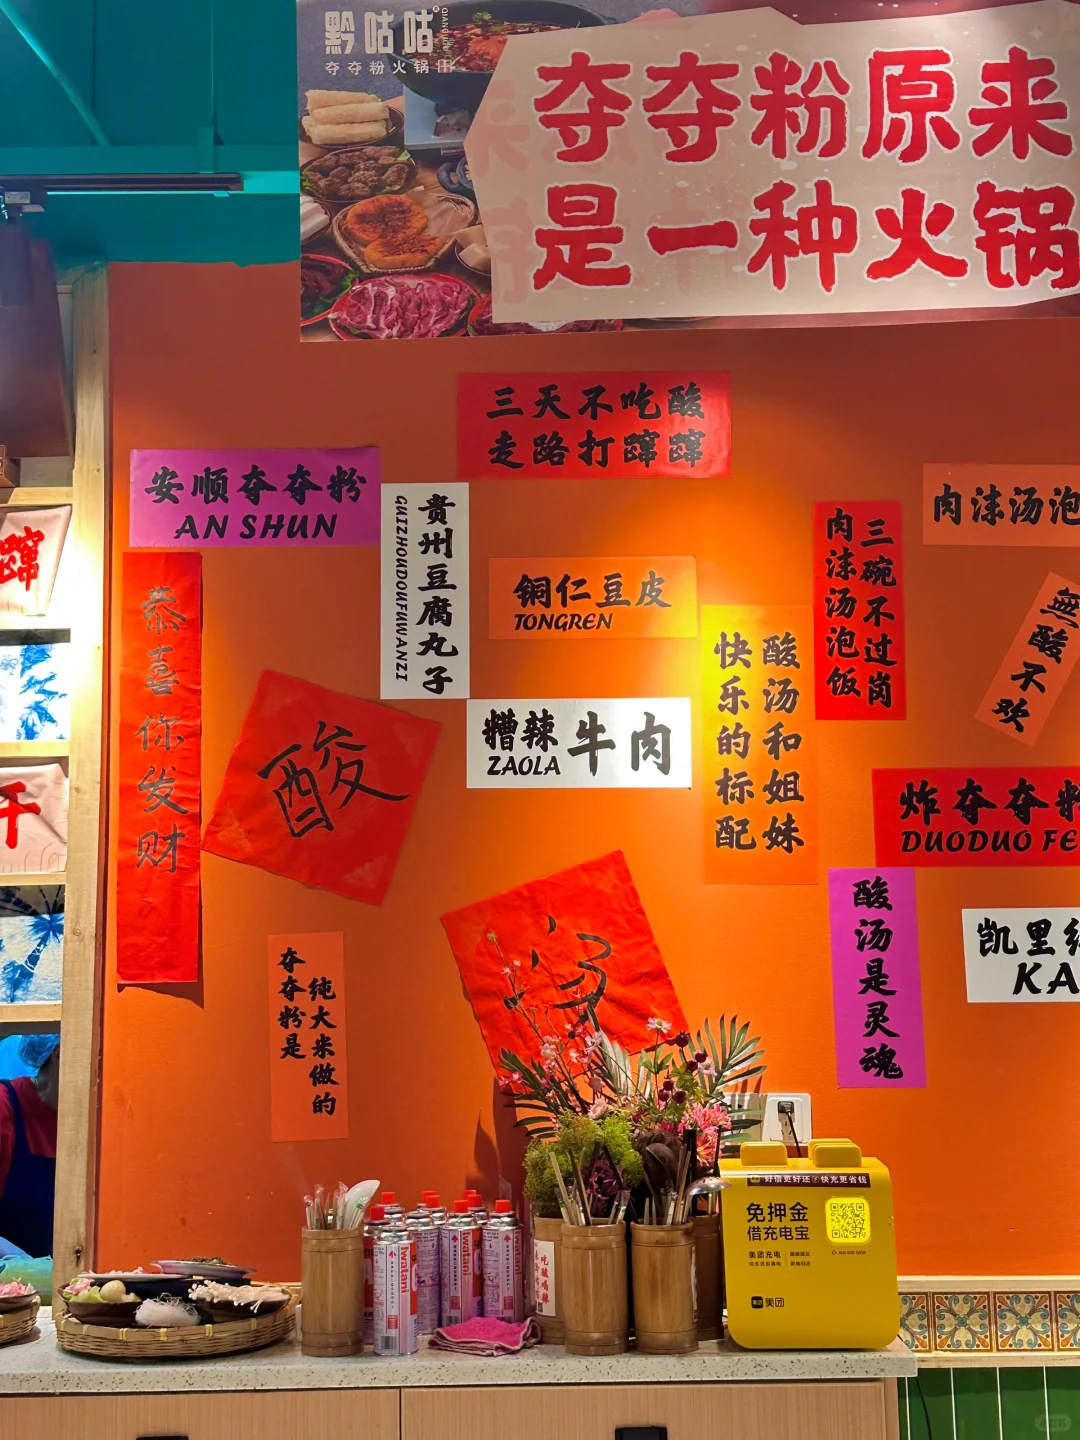 黔咕咕
夺夺粉火锅
夺夺粉原来
是一种火锅
三天不吃酸
走路打蹿蹿
安顺夺夺粉
AN SHUN
贵州豆腐丸子
GUIZHOUDOUFUWANZI
铜仁豆皮
TONGREN
三碗不过岗
肉沫汤泡饭
肉沫汤泡
無酸不欢
恭喜你发财
酸
糟辣牛肉
ZAOLA
酸汤和姐妹
快乐的标配
炸夺夺粉
DUODUO FE
酸汤是灵魂
凯里
KA
夺夺粉是
纯大米做的
蹿
干
Iwatani
好借更好还 快充更省钱
免押金
借充电宝
美团充电
美团